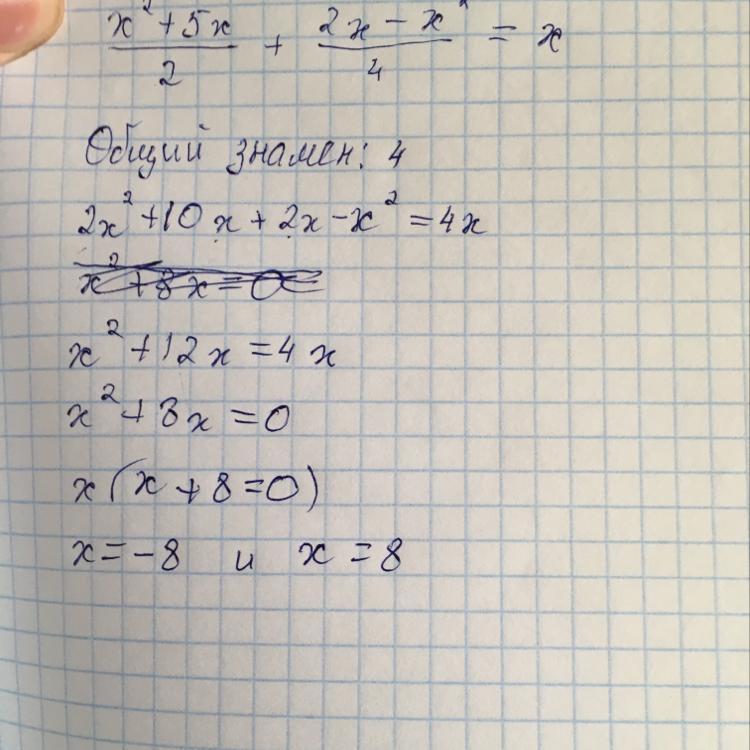 (x² + 5x)/2 + (2x - x²)/4 = x
Общий знамен: 4
2x² + 10x + 2x - x² = 4x
x² + 8x = 0
x² + 12x = 4x
x² + 8x = 0
x(x + 8 = 0)
x = -8 и x = 8